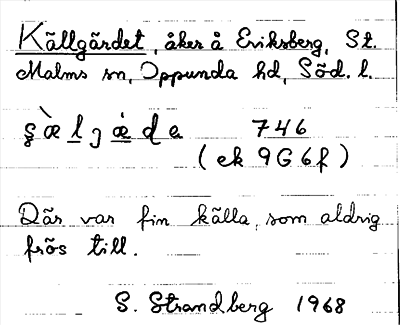 Källgärdet, åker å Eriksberg, St.
Malms sn, Oppunda hd, Söd. l.
746
(ek 9G6f)
Där var fin källa, som aldrig
frös till.
S. Strandberg 1968